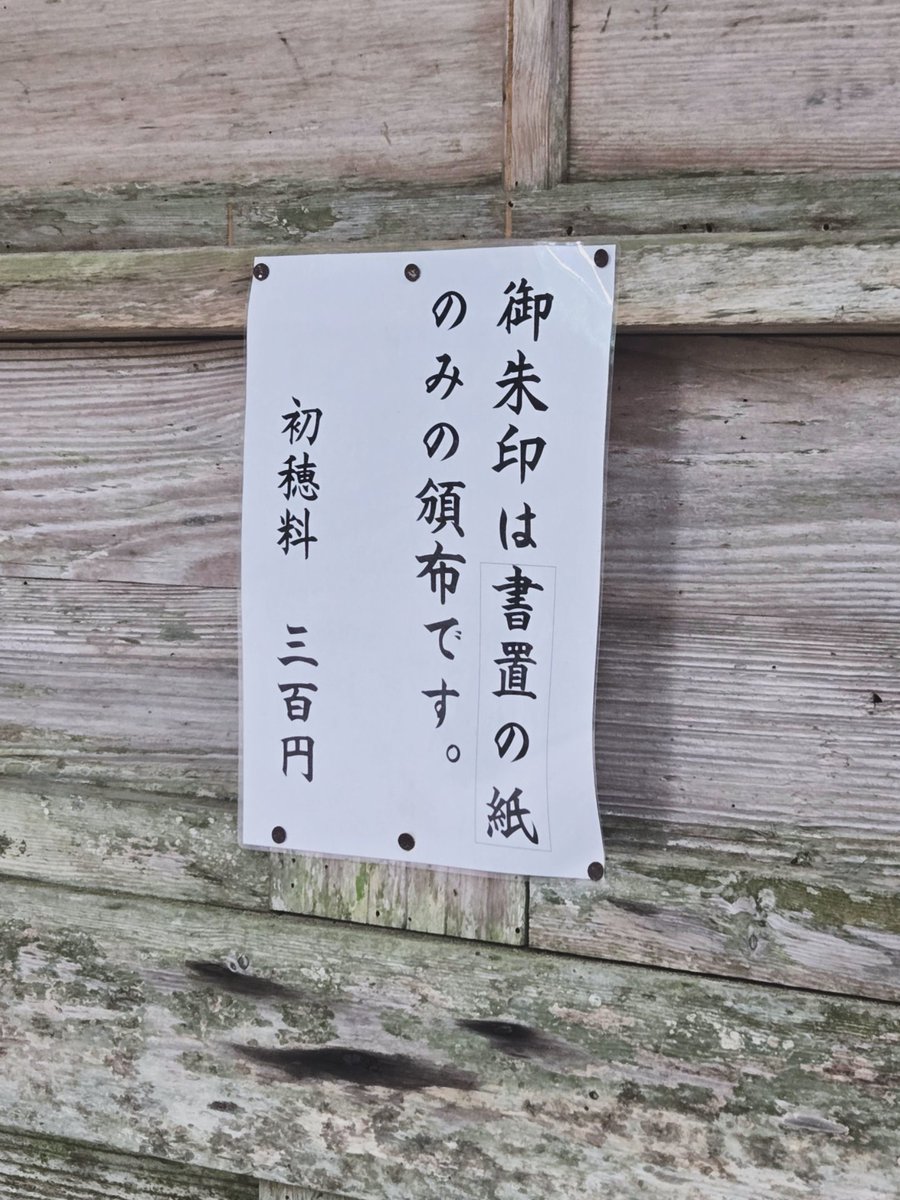 御朱印は書置の紙
のみの頒布です。
初穂料　三百円